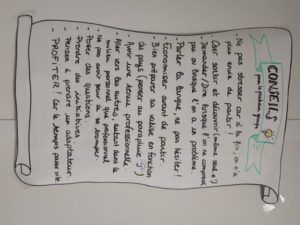 CONSEILS
pour le prochain groupe
- Ne pas stresser car à la fin, on n'a
plus envie de partir !
- Oser sortir et découvrir (même seul.e !)
- Demander/Dire lorsque l'on ne comprend
pas ou lorsque l'on a un problème.
- Parler la langue, ne pas hésiter !
- Economiser avant de partir.
- Bien préparer sa valise en fonction
du pays (prévoir parapluie
- Avoir une tenue professionnelle.
- Aller vers les autres, autant dans le
milieu personnel que professionnel
- Ne pas avoir peur de se tromper.
- Poser des questions.
- Prendre des initiatives
- Penser à prendre un adaptateur.
- PROFITER car le temps passe vite